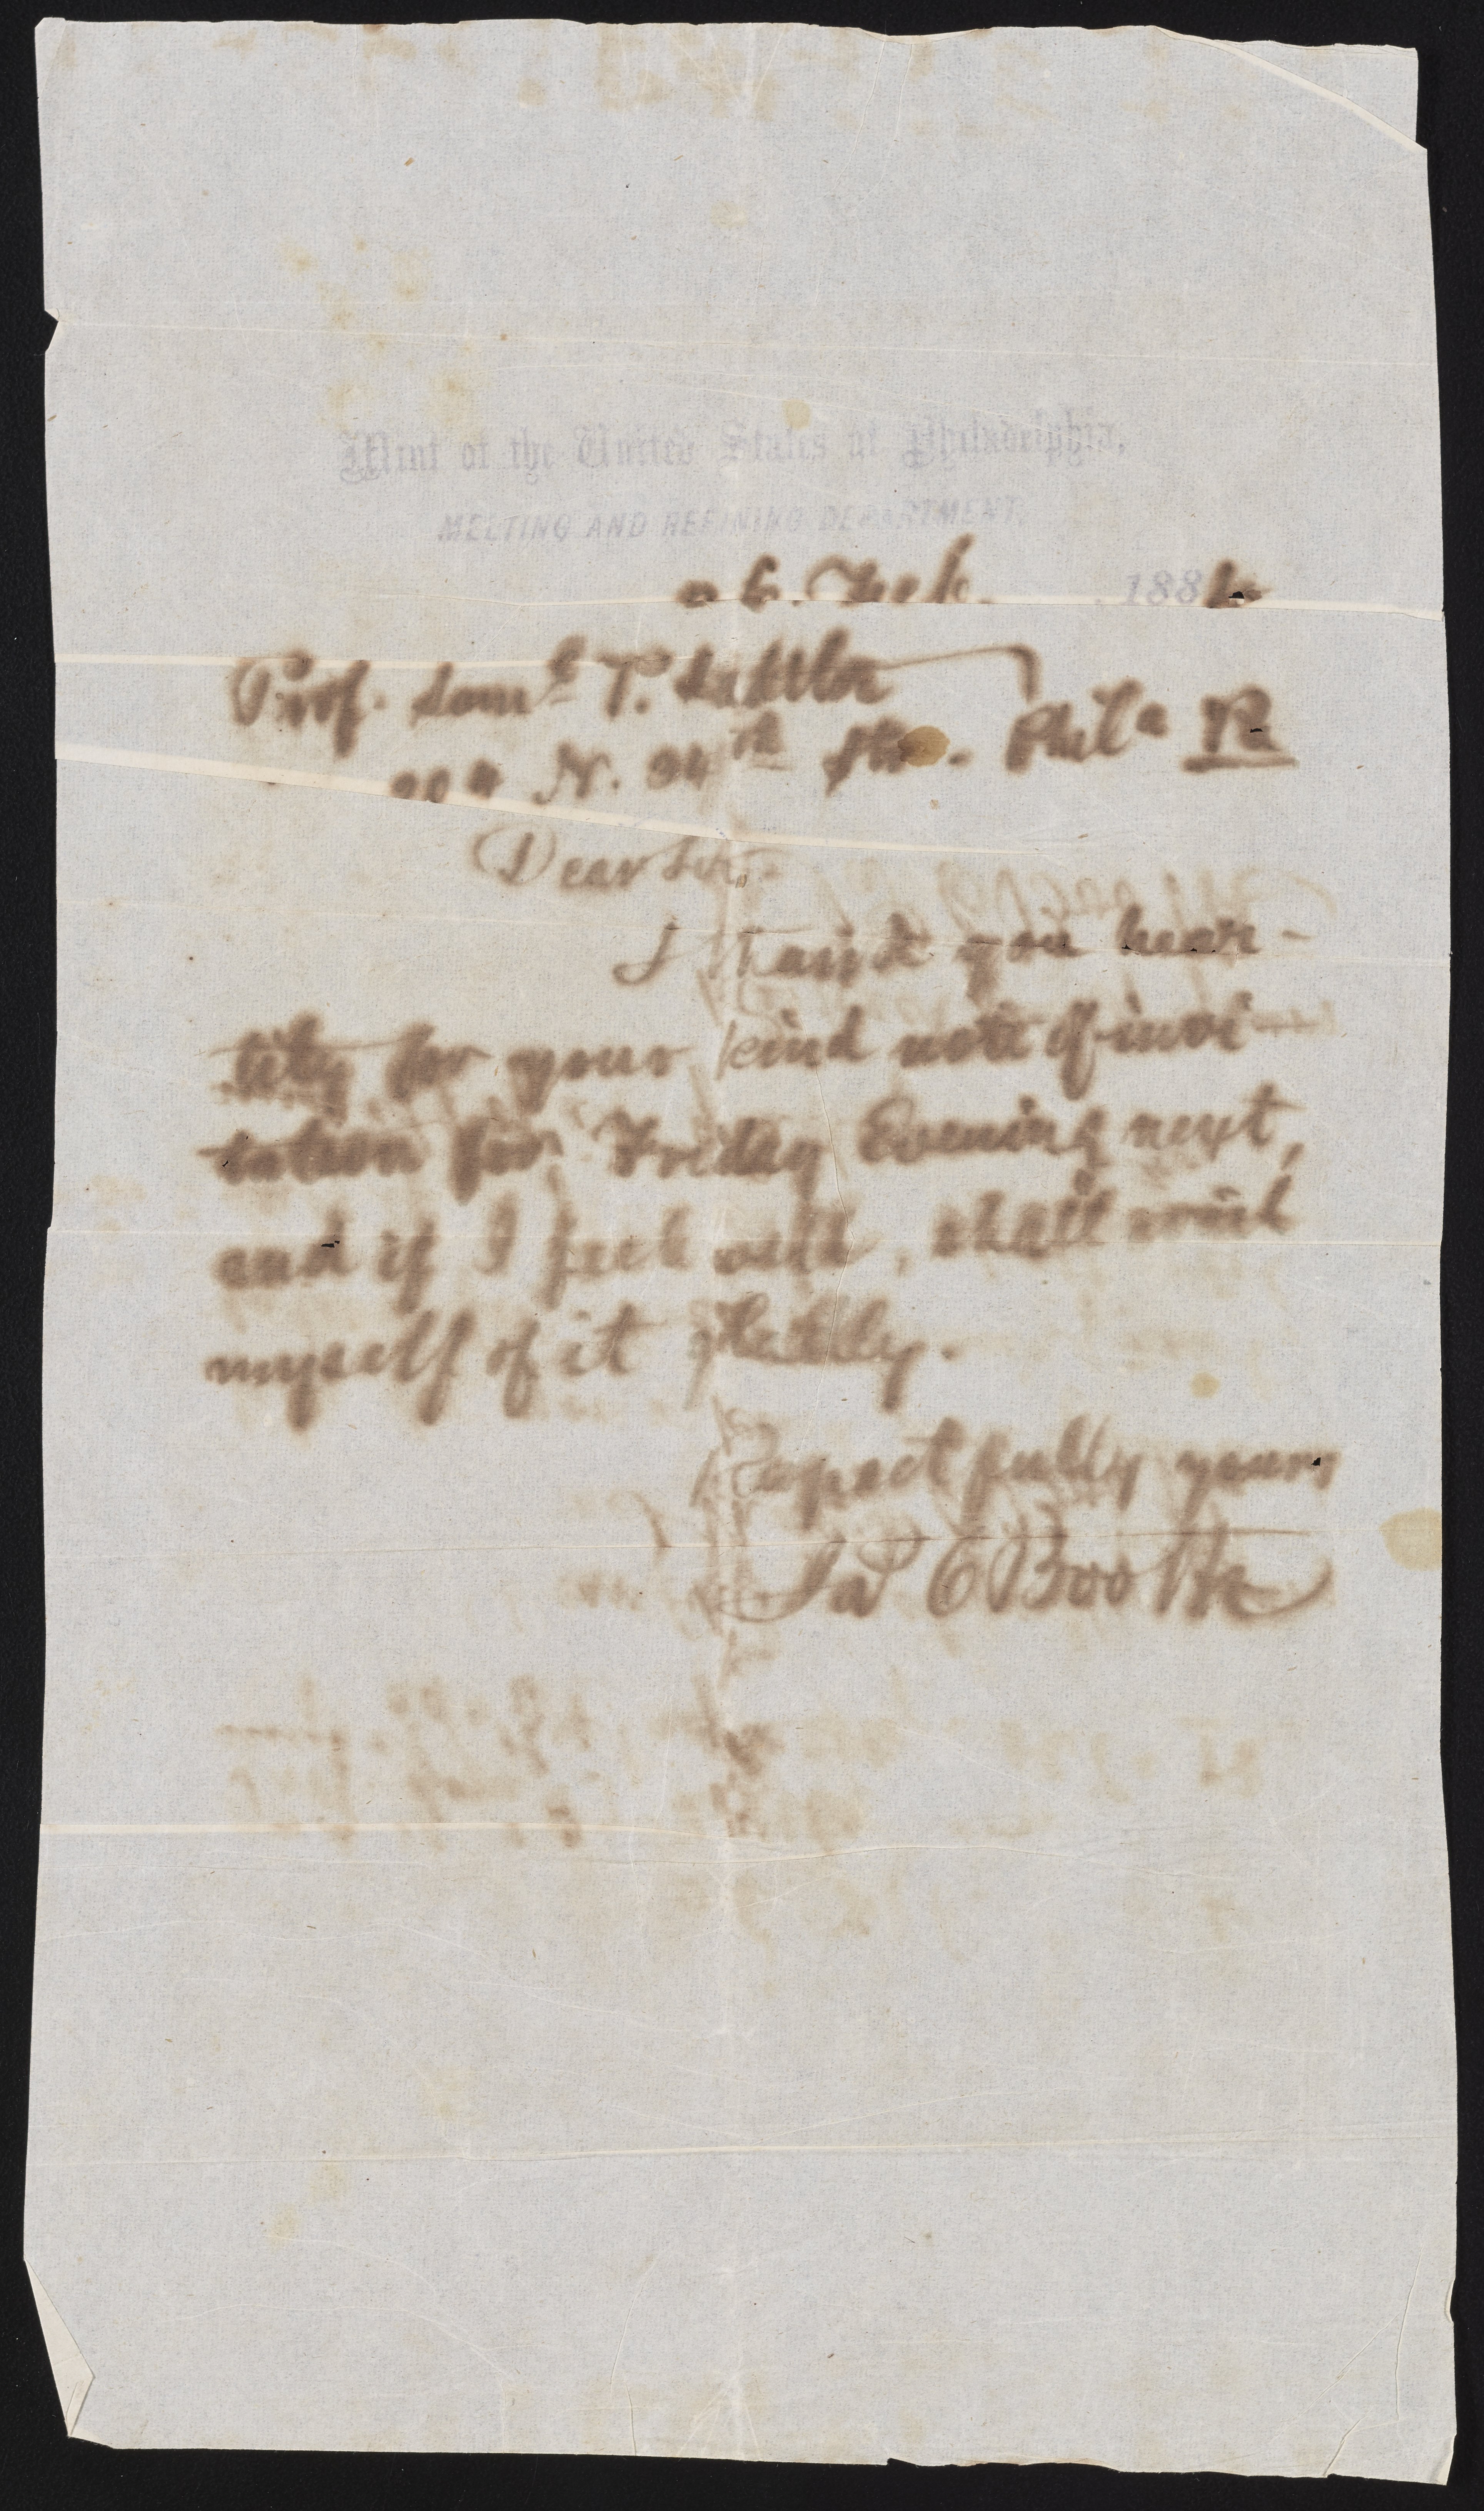 Mint of the United States at Philadelphia,
MELTING AND REFINING DEPARTMENT,
Feb. 188
Prof. Saml P. Sadtler
204 N. 34th Str. Phila Pa
Dear Sir,
I thank you hear-
tily for your kind note of invi-
tation for Friday Evening next,
and if I feel well, shall avail
myself of it gladly.
Respectfully yours
Jas C Booth